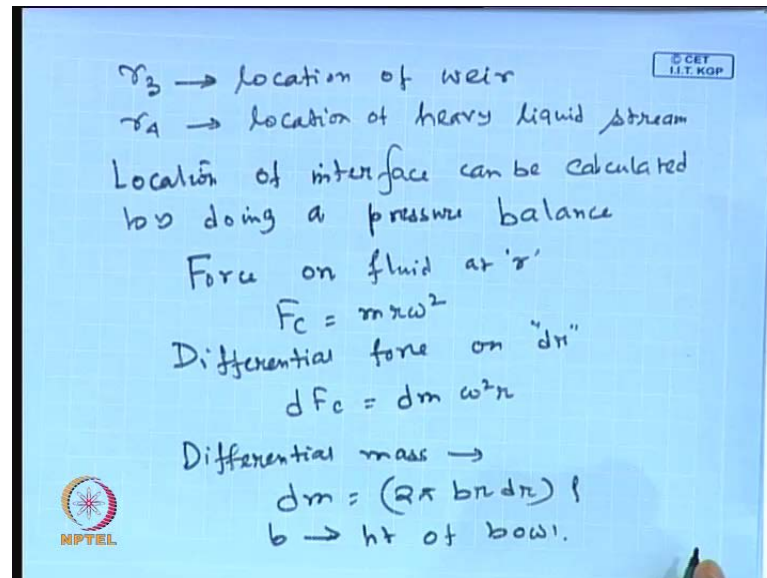 © CET
I.I.T. KGP
r₃ → location of weir
r₄ → location of heavy liquid stream
Location of interface can be calculated
by doing a pressure balance
Force on fluid at 'r'
Fc = mrω²
Differential force on "dr"
dFc = dm ω²r
Differential mass →
dm = (2π br dr) ρ
b → ht of bowl.
NPTEL